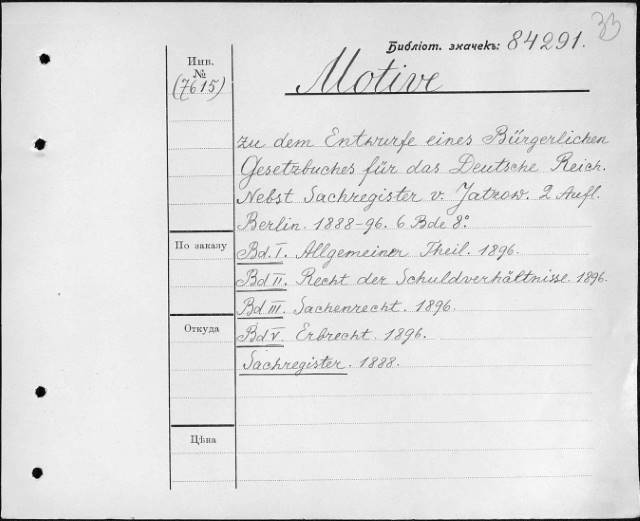 33
Библіот. значекъ: 84291.
Инв.
№
(7615)
Motive
zu dem Entwurfe eines Bürgerlichen
Gesetzbuches für das Deutsche Reich.
Nebst Sachregister v. Jatzow. 2 Aufl.
Berlin. 1888-96. 6 Bde 8°.
По заказу
Bd. I. Allgemeiner Theil. 1896.
Bd II. Recht der Schuldverhältnisse. 1896.
Bd III. Sachenrecht. 1896.
Откуда
Bd V. Erbrecht. 1896.
Sachregister. 1888.
Цѣна